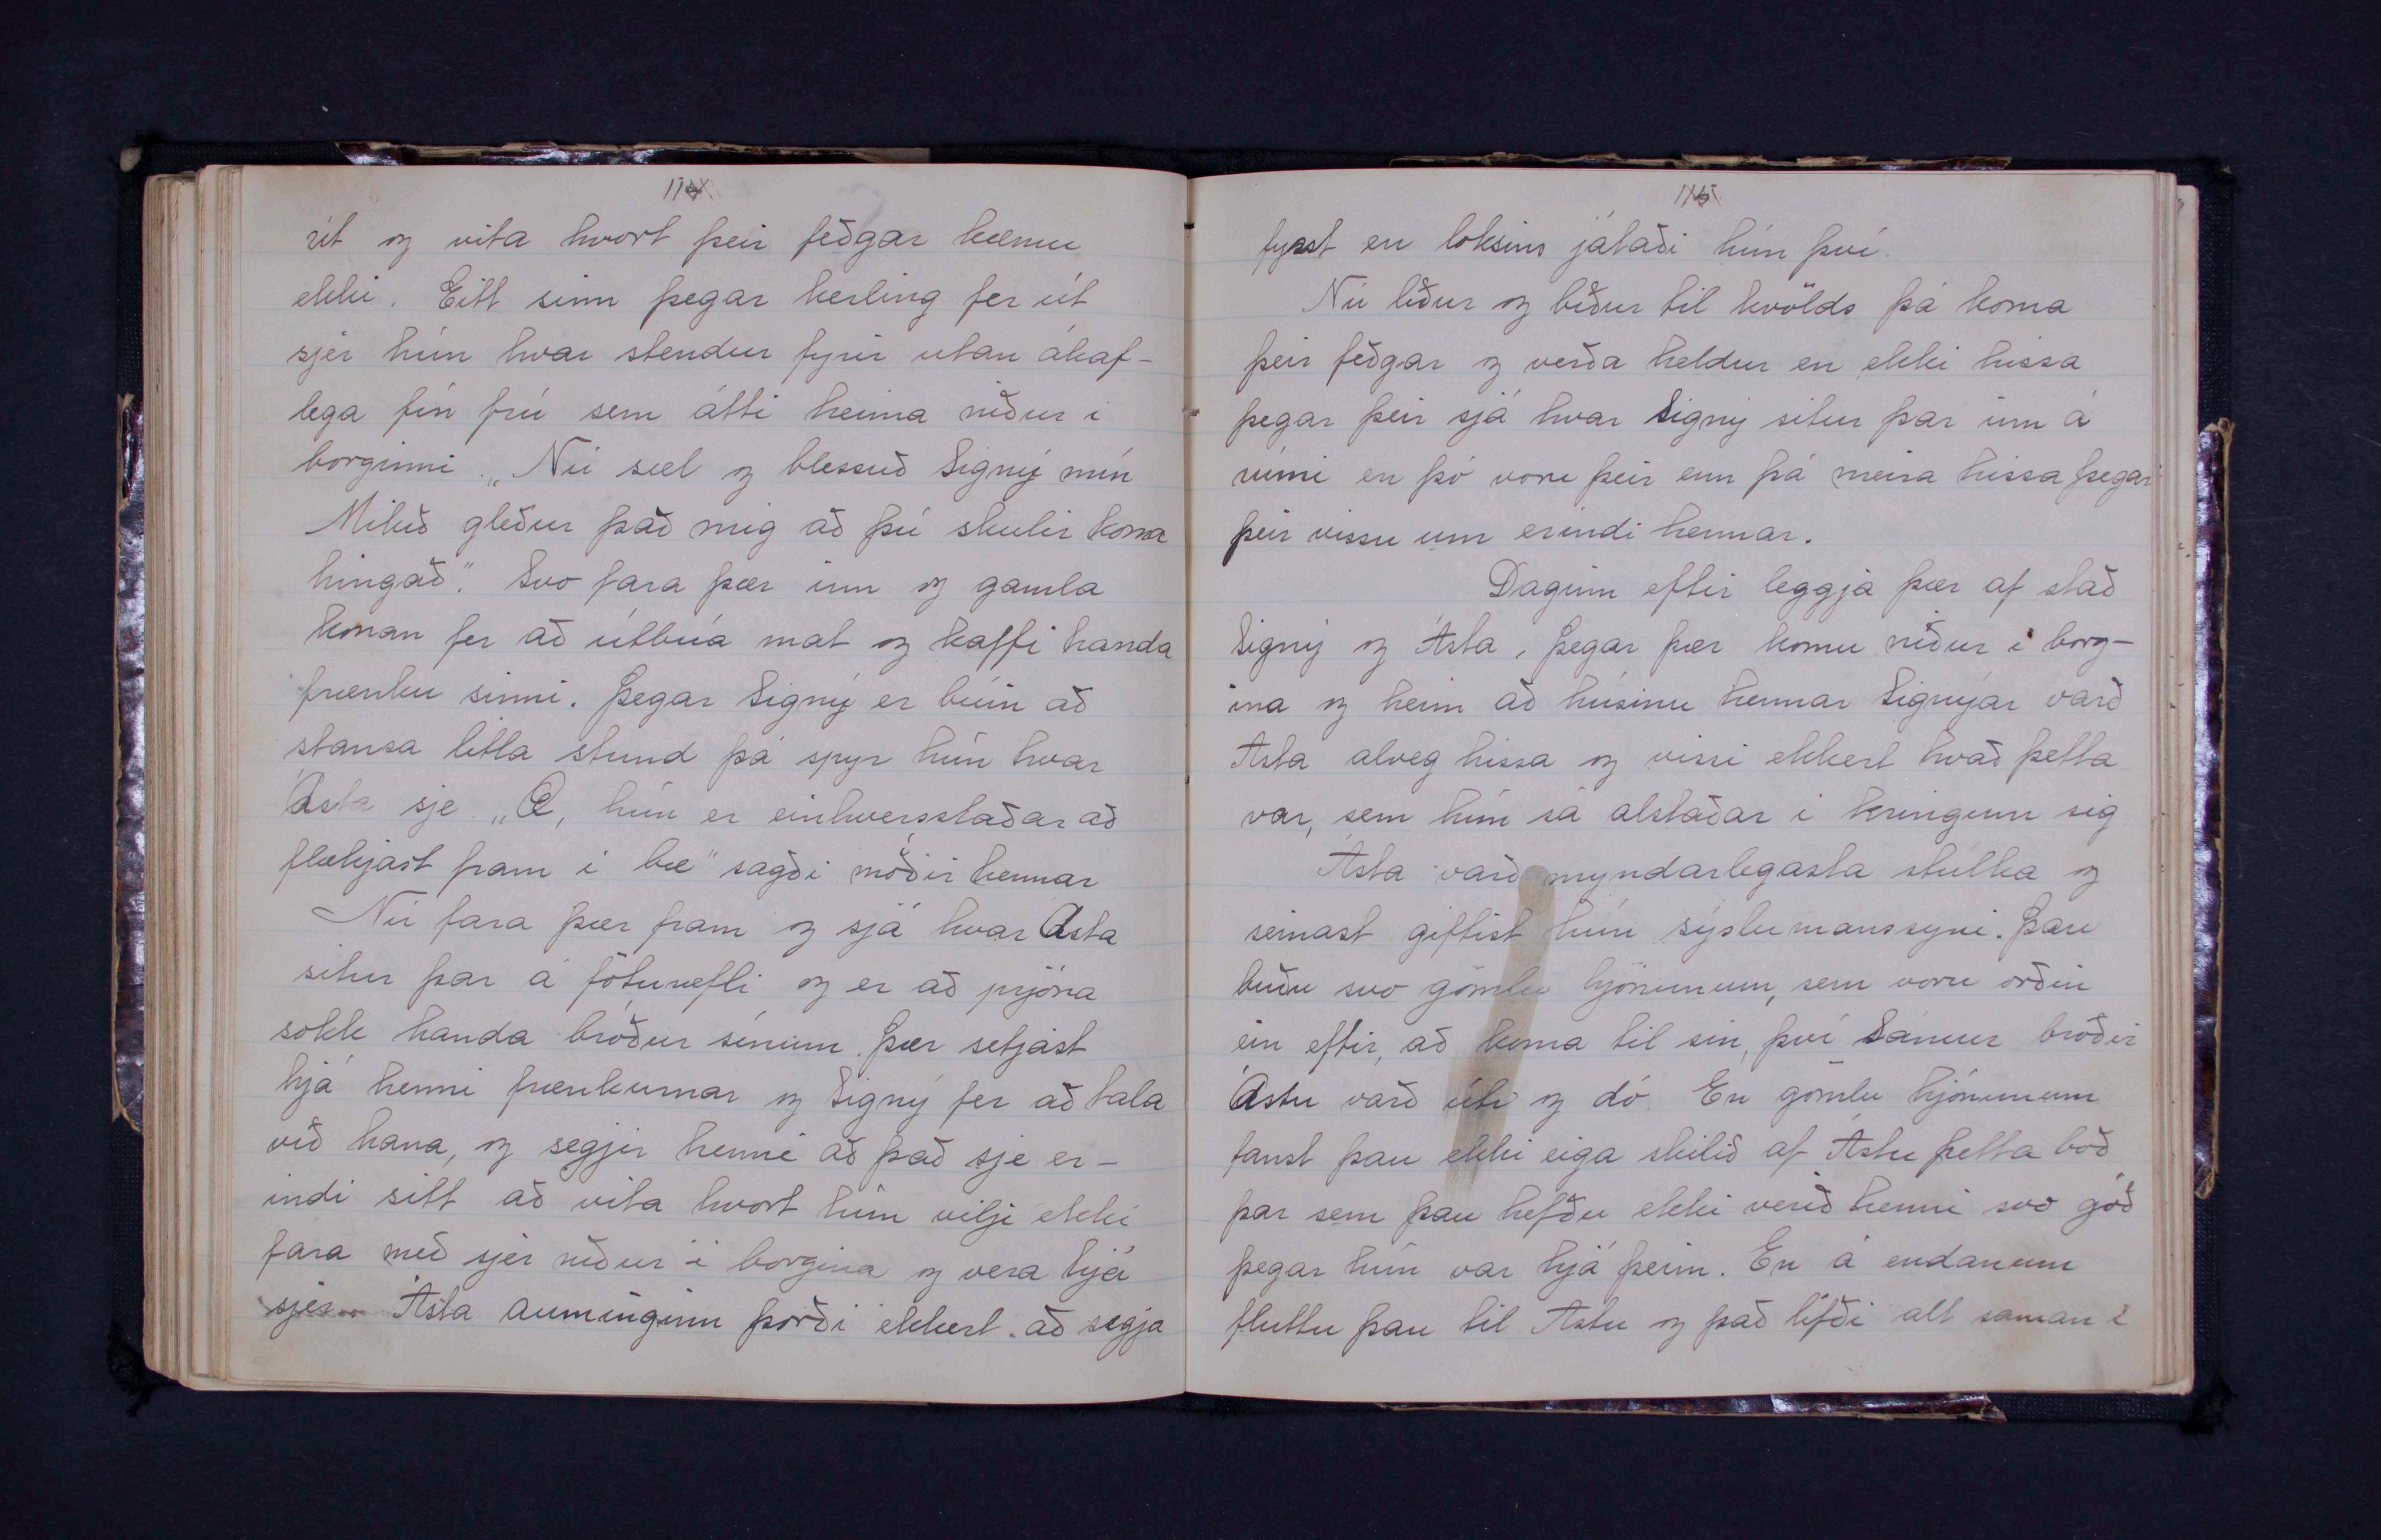 114.
út og vita hvort þeir feðgar kæmu
ekki. Eitt sinn þegar kerling fer út
sjer hún hvar stendur fyrir utan ákaf-
lega fín frú sem átti heima niður í
borginni. „Nú sæl og blessuð Signý mín
Mikið gleður það mig að þú skulir koma
hingað". Svo fara þær inn og gamla
konan fer að útbúa mat og kaffi handa
frænku sinni. Þegar Signý er búin að
stansa litla stund þá spyr hún hvar
Ásta sje. „Æ, hún er einhversstaðar að
flækjast fram í bæ" sagði móðir hennar
Nú fara þær fram og sjá hvar Ásta
situr þar á fötunefli og er að prjóna
sokk handa bróður sínum. Þær setjast
hjá henni frænkurnar og Signý fer að tala
við hana, og segjir henni að það sje er-
indi sitt að vita hvort hún vilji ekki
fara með sjer niður í borgina og vera hjá
sjer. Ásta auminginn þorði ekkert að segja
115
fyrst en loksins játaði hún því.
Nú líður og bíður til kvölds þá koma
þeir feðgar og verða heldur en ekki hissa
þegar þeir sjá hvar Signý situr þar inn á
rúmi en þó voru þeir enn þá meira hissa þegar
þeir vissu um erindi hennar.
Daginn eftir leggja þær af stað
Signý og Ásta, þegar þær komu niður í borg-
ina og heim að húsinu hennar Signýjar varð
Ásta alveg hissa og vissi ekkert hvað þetta
var, sem hún sá alstaðar í kringum sig
Ásta varð myndarlegasta stúlka og
seinast giftist hún sýslumanssyni. Þau
buðu svo gömlu hjónunum, sem voru orðin
ein eftir, að koma til sín, því Sámur bróðir
Ástu varð úti og dó. En gömlu hjónunum
fanst þau ekki eiga skilið af Ástu þetta boð
þar sem þau hefðu ekki verið henni svo góð
þegar hún var hjá þeim. En á endanum
fluttu þau til Ástu og það lifði alt saman í